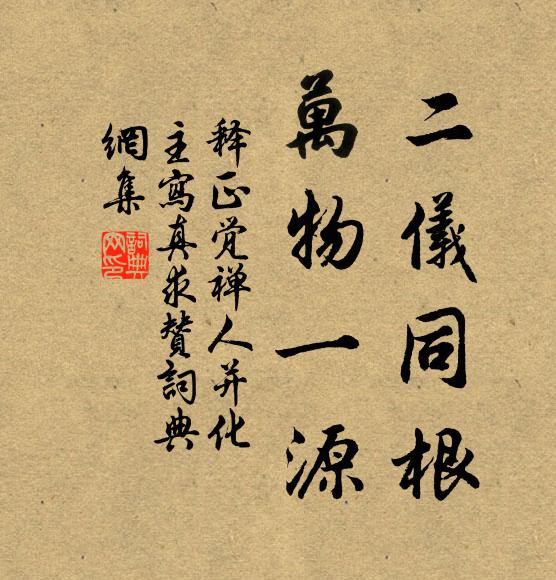 二儀同根
萬物一源
释正觉禅人并化
主寫真求赞詞典
網集
詞典网印